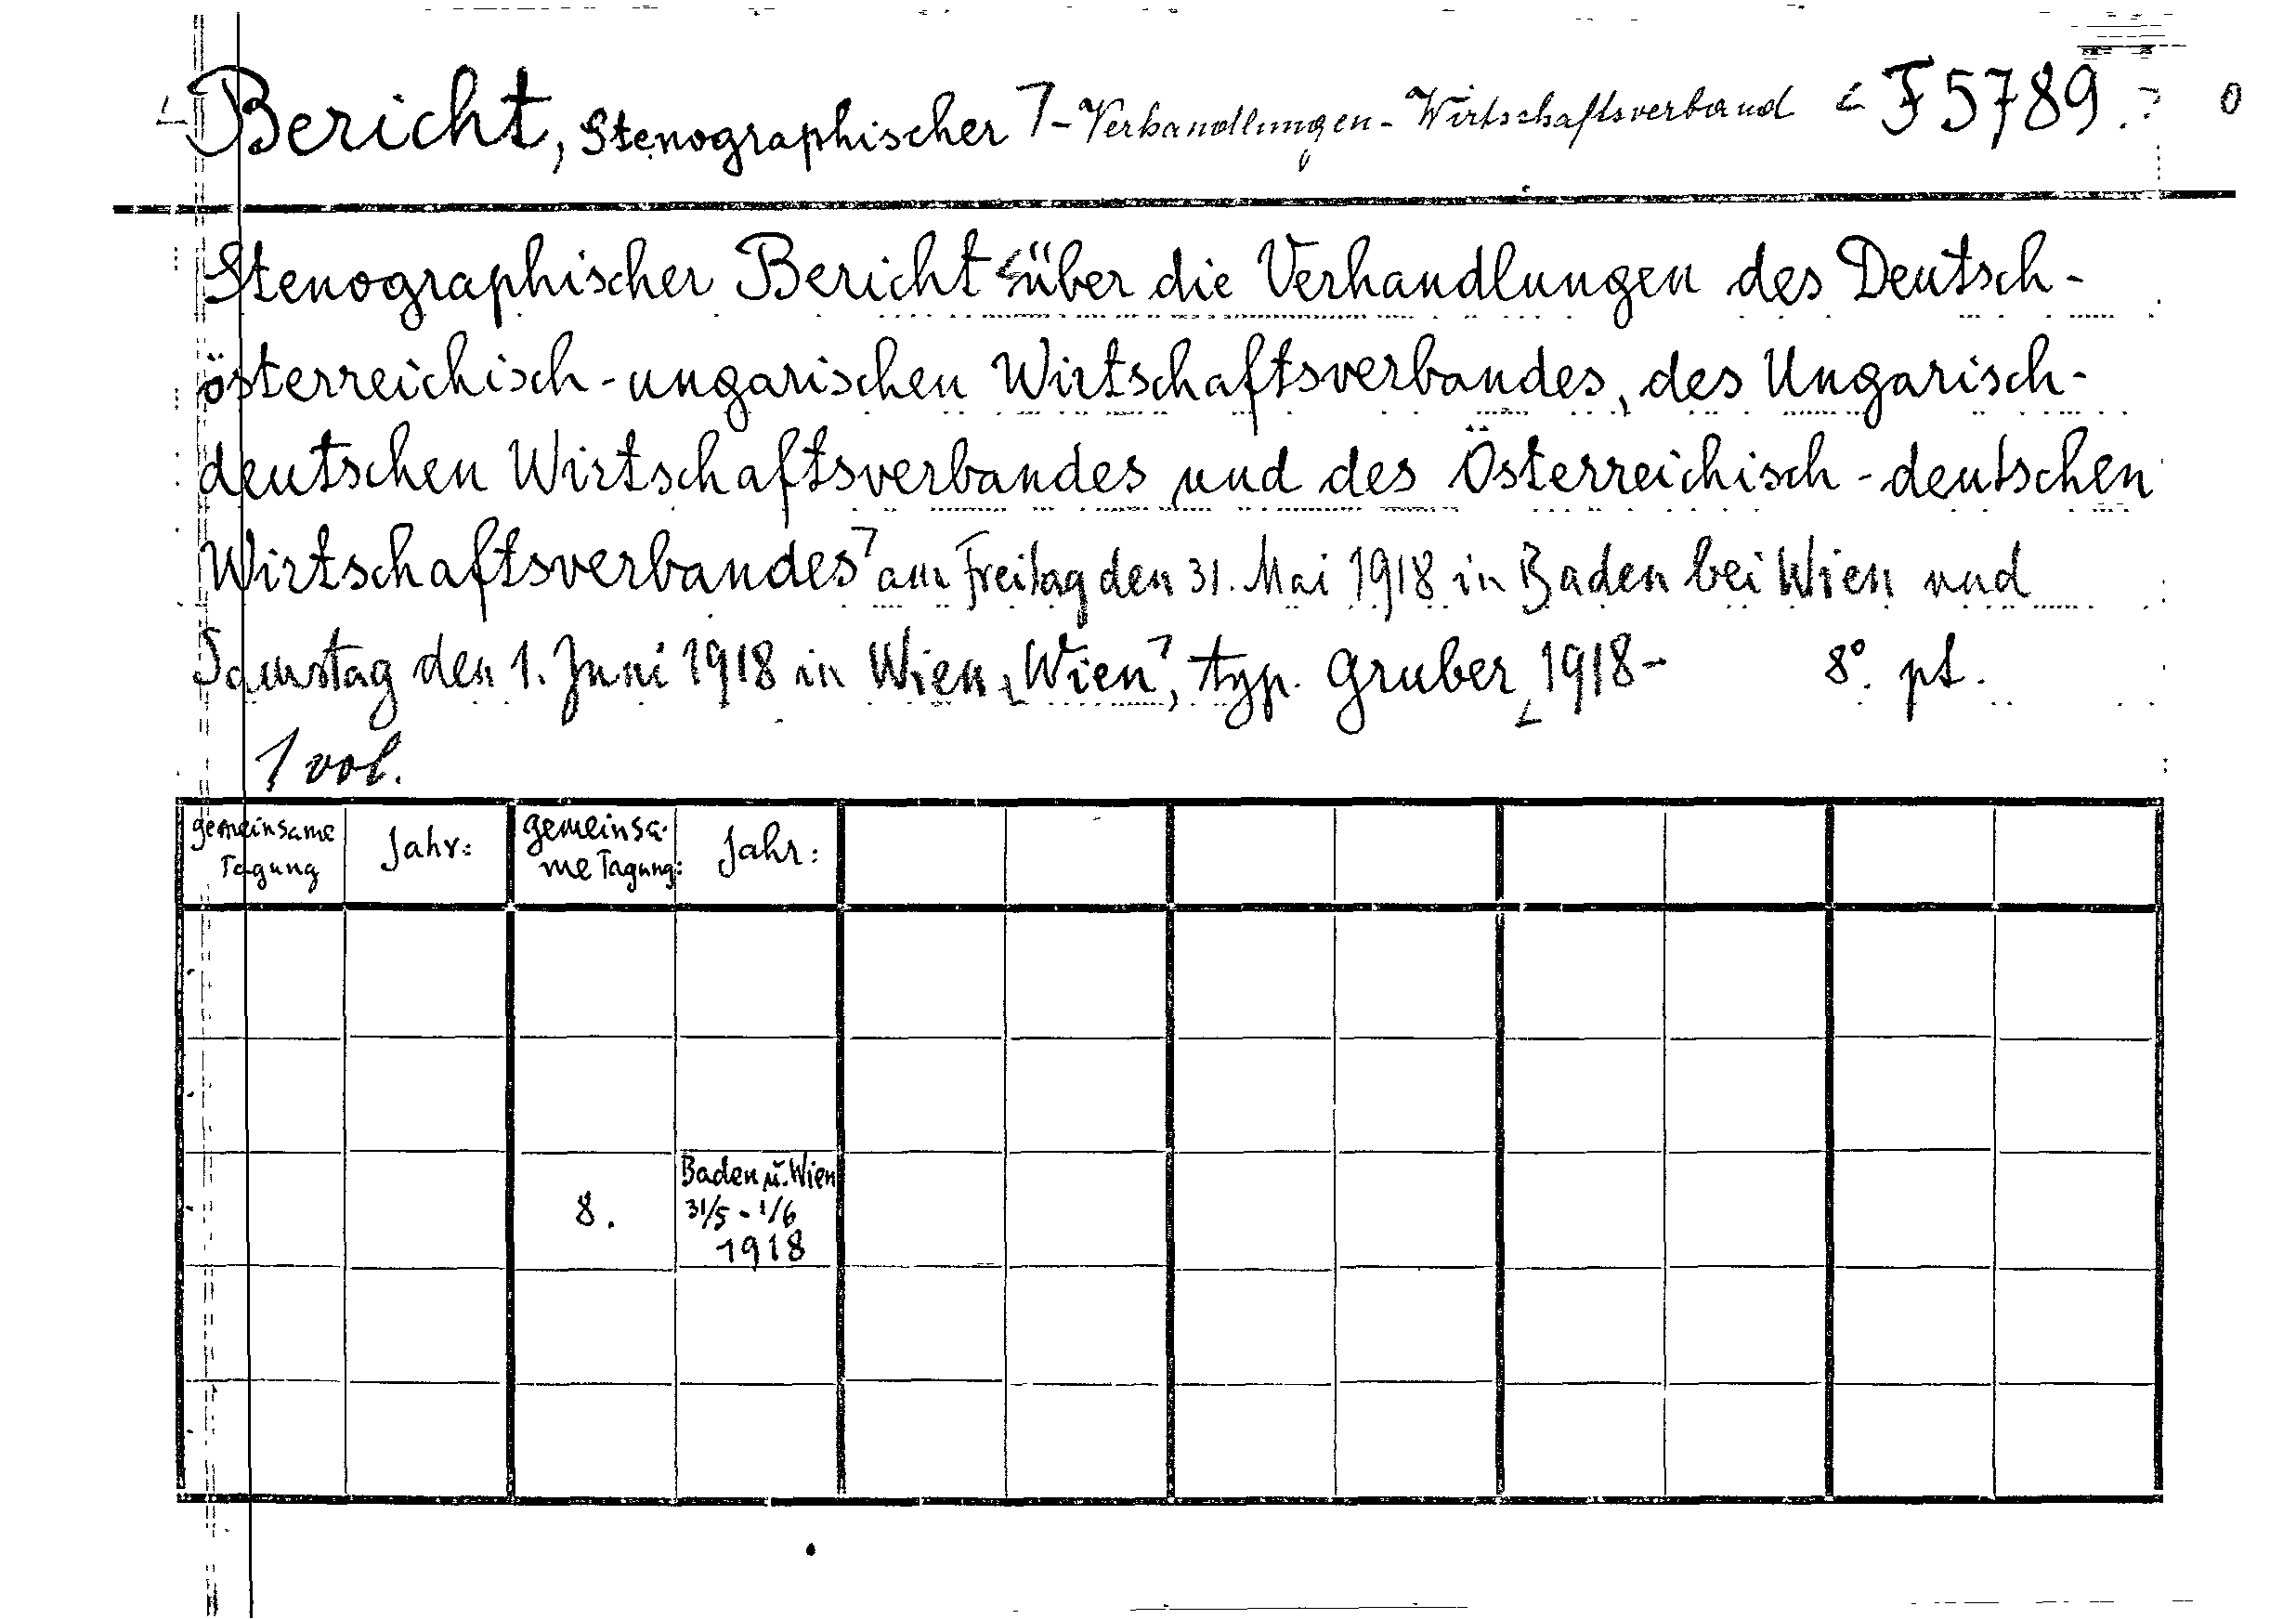 Bericht, Stenographischer - Verhandlungen - Wirtschaftsverband F 5789.
Stenographischer Bericht über die Verhandlungen des Deutsch-
österreichisch-ungarischen Wirtschaftsverbandes, des Ungarisch-
deutschen Wirtschaftsverbandes und des Österreichisch-deutschen
Wirtschaftsverbandes am Freitag den 31. Mai 1918 in Baden bei Wien und
Samstag den 1. Juni 1918 in Wien, Wien, typ. Gruber 1918- 8° pt.
1 vol.
gemeinsame Tagung Jahr: gemeinsa- me Tagung: Jahr:
8. Baden u. Wien
31/5 - 1/6
1918